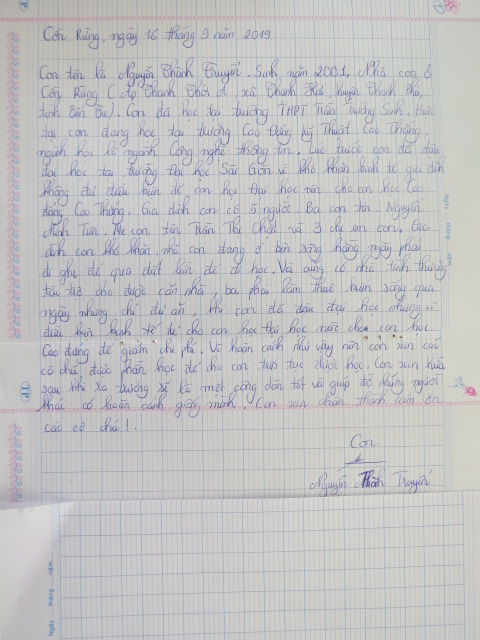 Cồn Rừng, ngày 16 tháng 9 năm 2019
Con tên là Nguyễn Thành Truyền. Sinh năm 2001. Nhà con ở
Cồn Rừng ( ấp Thạnh Thới A, xã Thạnh Hải, huyện Thạnh Phú,
tỉnh Bến Tre). Con đã học tại trường THPT Trần Trường Sinh, hiện
tại con đang học tại trường Cao Đẳng Kỹ Thuật Cao Thắng,
ngành học là ngành Công nghệ thông tin. Lúc trước con đã đậu
đại học tại trường Đại học Sài Gòn vì khó khăn kinh tế gia đình
không đủ điều kiện để con học đại học nên cho con học Cao
đẳng Cao Thắng. Gia đình con có 5 người. Ba con tên Nguyễn
Minh Tiền. Mẹ con tên Trần Thị Chất và 3 chị em con. Gia
đình con khó khăn nhà con đang ở bên sông hằng ngày phải
đi ghe để qua đất liền để đi học. Và cũng có nhà tình thương
tài trợ cho được căn nhà, ba phải làm thuê kiếm sống qua
ngày nhưng chỉ đủ ăn, khi con đã đậu đại học nhưng vì
điều kiện kinh tế để cho con học đại học nên cho con học
Cao đẳng để giảm chi phí. Vì hoàn cảnh như vậy nên con xin các
cô chú được phần học để cho con tiếp tục được học. Con xin hứa
sau khi ra trường sẽ là một công dân tốt và giúp đỡ những người
khác có hoàn cảnh giống mình. Con xin chân thành cảm ơn
các cô chú!.
Con
Nguyễn Thành Truyền
Ngày tháng năm
Ngày tháng năm